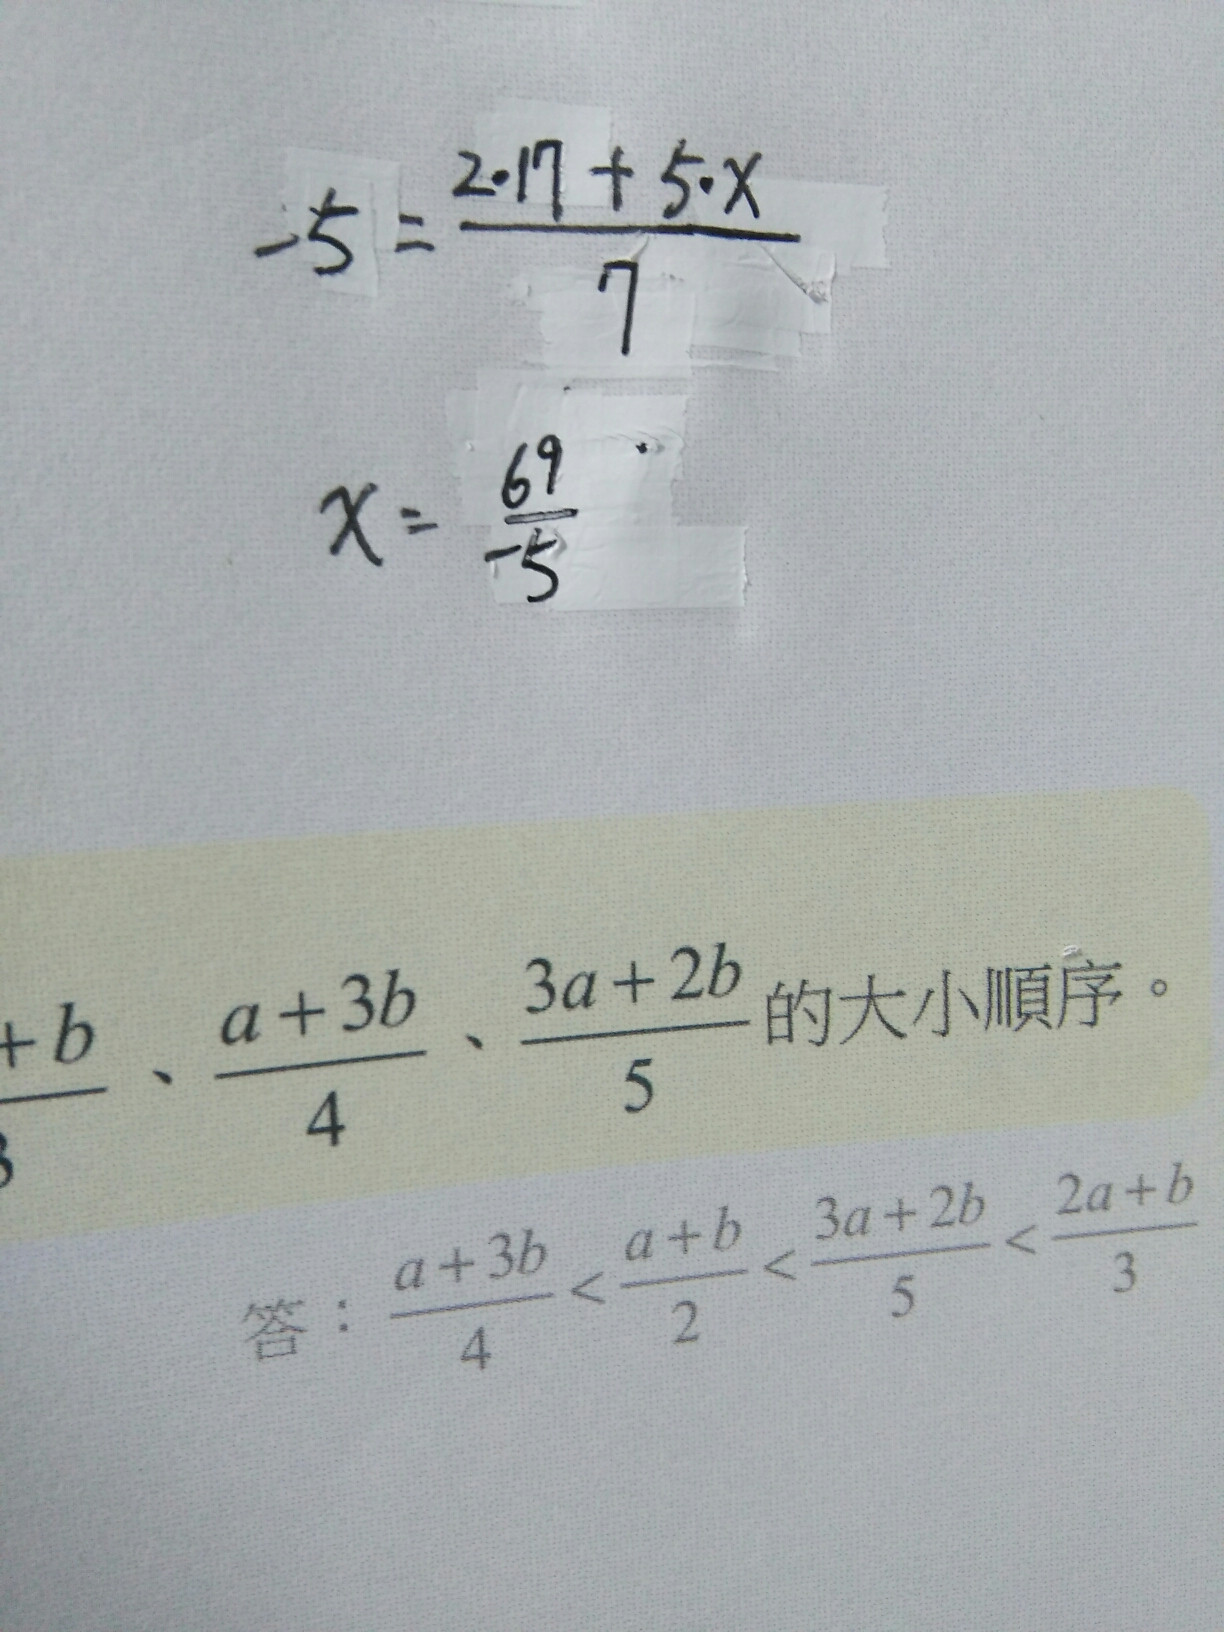 -5 = (2·17 + 5·x)/7
x = 69/-5
+ b/3、(a + 3b)/4、(3a + 2b)/5 的大小順序。
答：(a + 3b)/4 < (a + b)/2 < (3a + 2b)/5 < (2a + b)/3